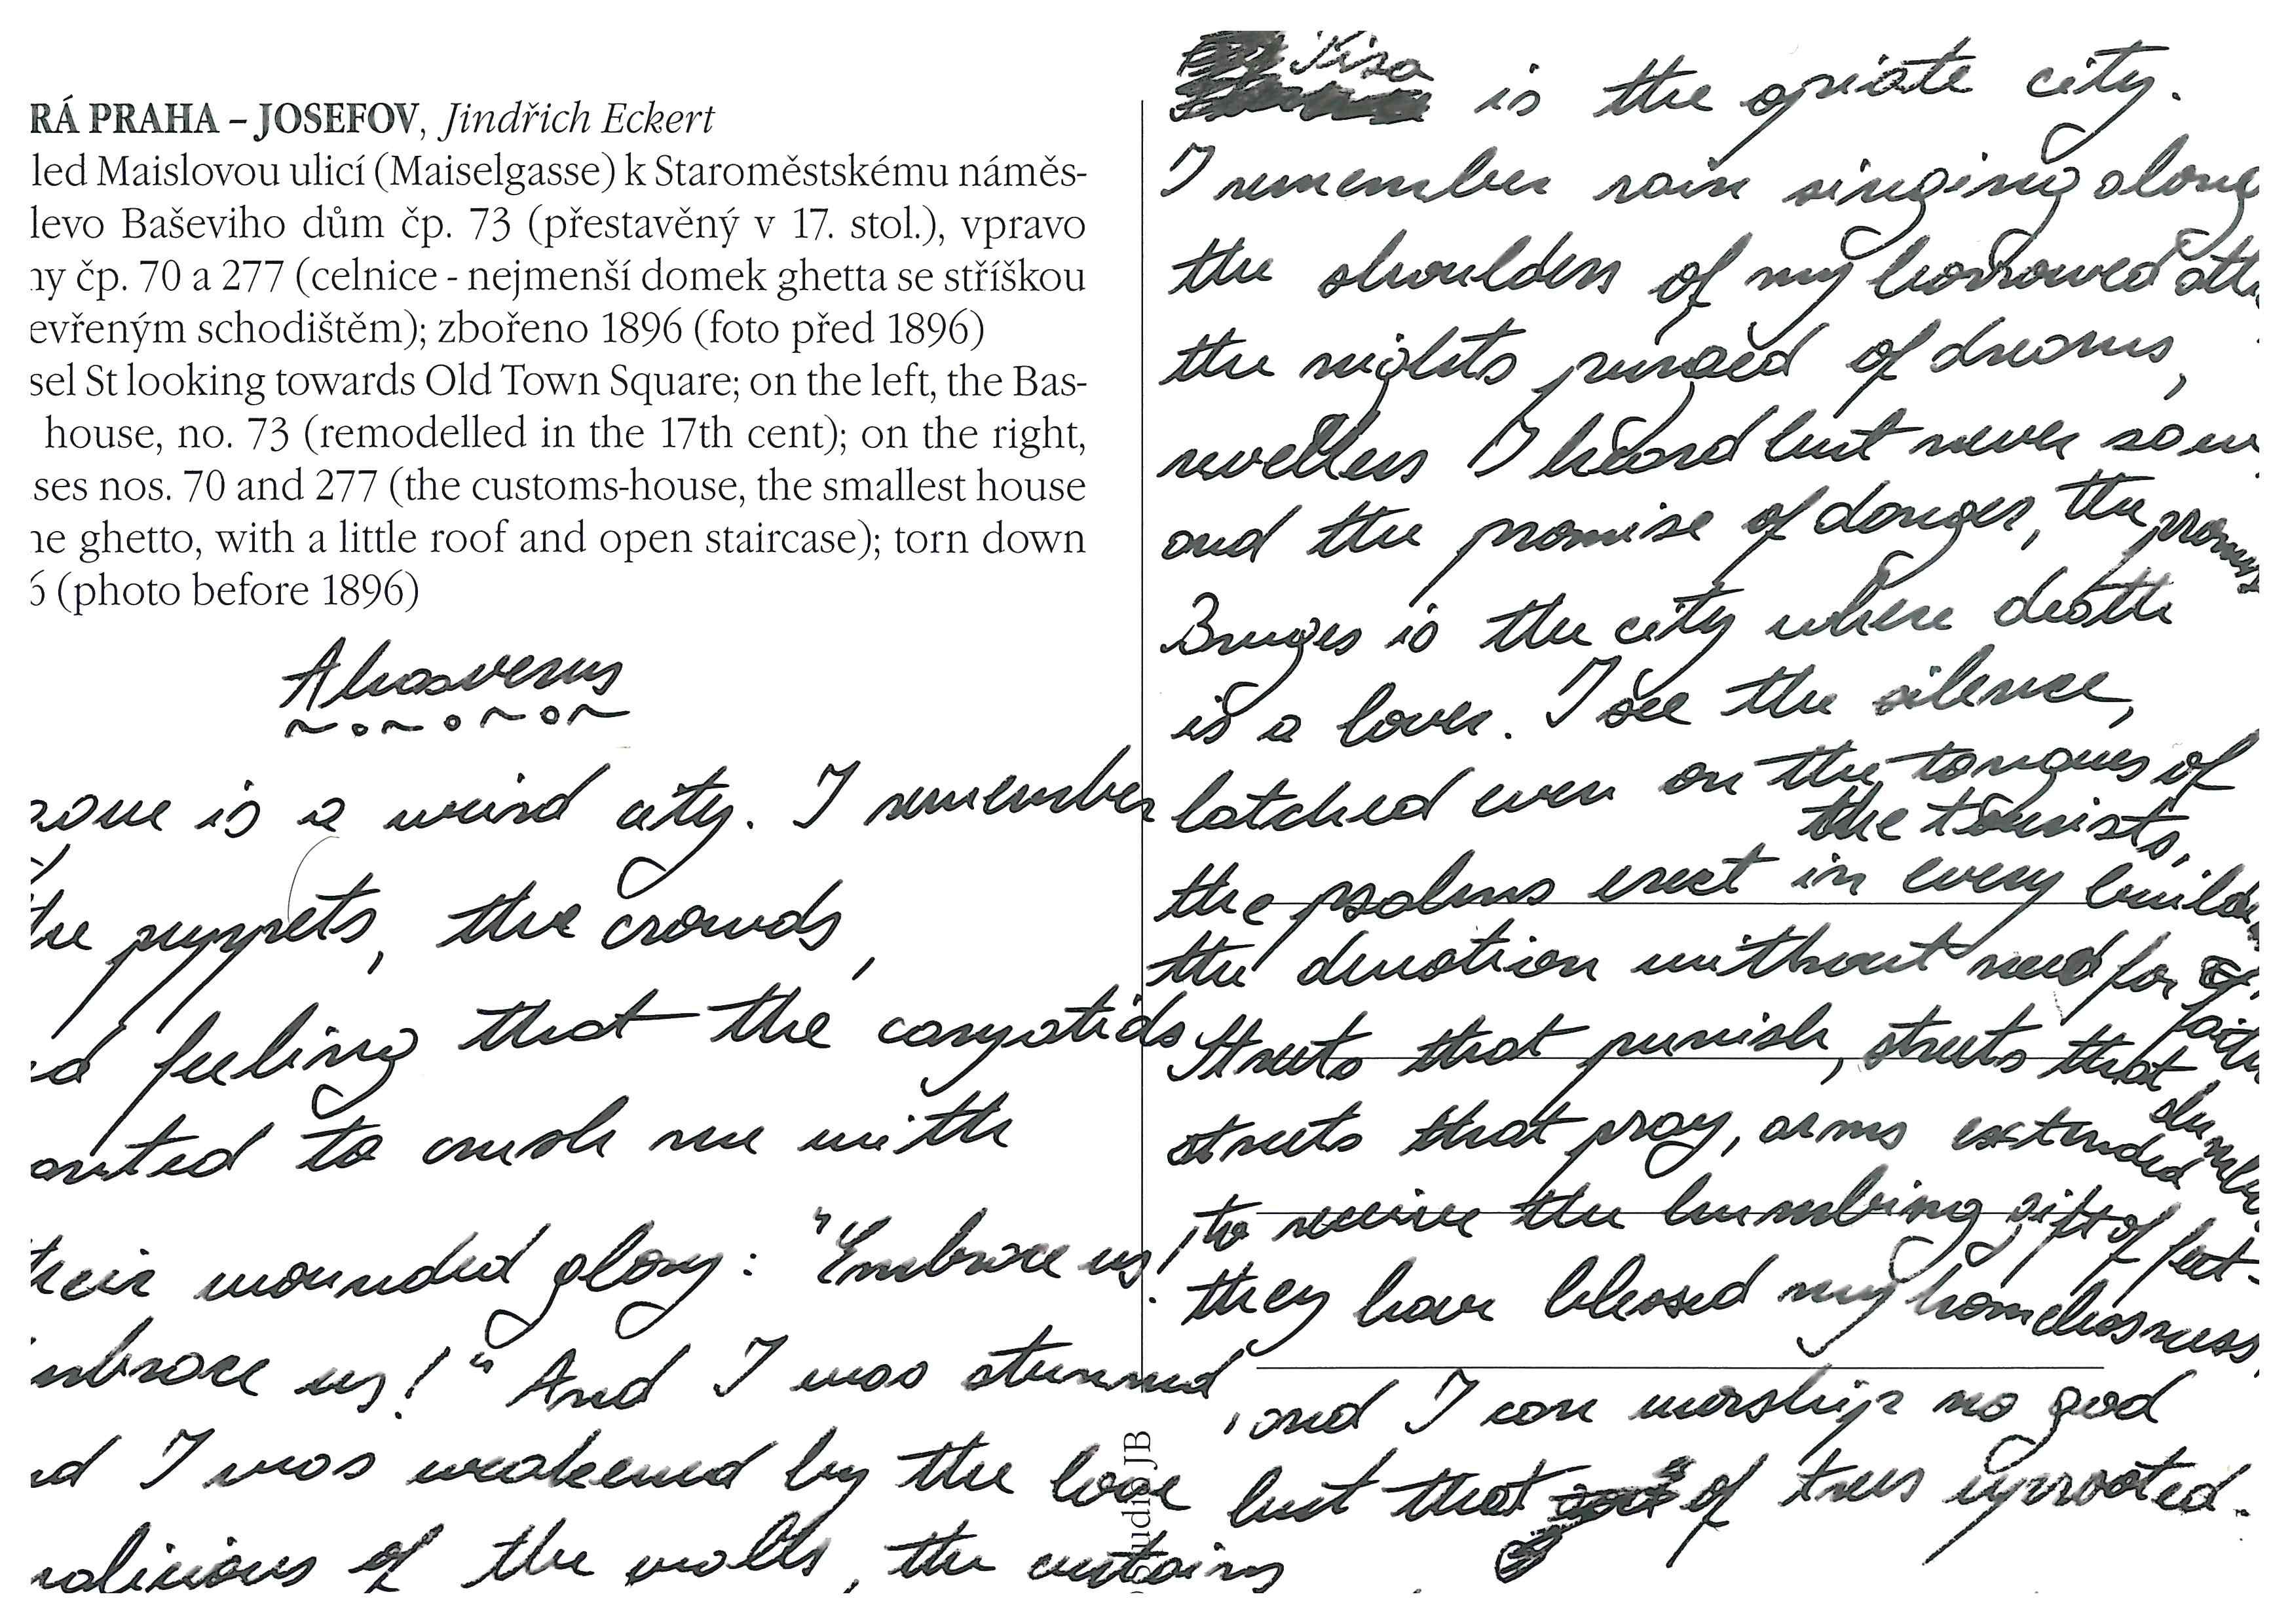 RÁ PRAHA – JOSEFOV, Jindřich Eckert
led Maislovou ulicí (Maiselgasse) k Staroměstskému náměs-
levo Baševiho dům čp. 73 (přestavěný v 17. stol.), vpravo
ny čp. 70 a 277 (celnice - nejmenší domek ghetta se stříškou
evřeným schodištěm); zbořeno 1896 (foto před 1896)
sel St looking towards Old Town Square; on the left, the Bas-
house, no. 73 (remodelled in the 17th cent); on the right,
ses nos. 70 and 277 (the customs-house, the smallest house
ne ghetto, with a little roof and open staircase); torn down
6 (photo before 1896)
Ahasverus
is a weird city. I remember
the puppets, the crowds,
feeling that the caryatids
anted to crush me with
their wounded glory: "Embrace us!
mbrace us!" And I was stunned,
nd I was weakened by the love
malicious of the walls, the curtains
Pisa is the opiate city.
I remember rain singing along
the shoulders of my borrowed
the nights purged of dreams,
revellers I heard but never saw
and the promise of danger, the promise
Bruges is the city where death
is a lover. I see the silence,
latched even on the tongues of
the tourists,
the psalms erect in every
the devotion without need for
faith
Streets that punish, streets that
streets that pray, arms extended
to receive the humbling gift of feet-
they have blessed my homelessness
, and I can worship no god
but that of trees uprooted.
Studio JB